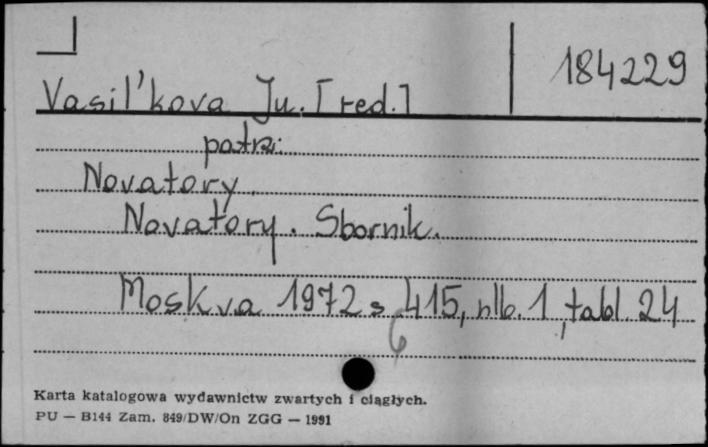 184229
Vasil'kova Ju. [red.]
patrz:
Novatory.
Novatory. Sbornik.
Moskva 1972 s. 415, nlb. 1, tabl. 24
Karta katalogowa wydawnictw zwartych i ciągłych.
PU — B144 Zam. 849/DW/On ZGG — 1991